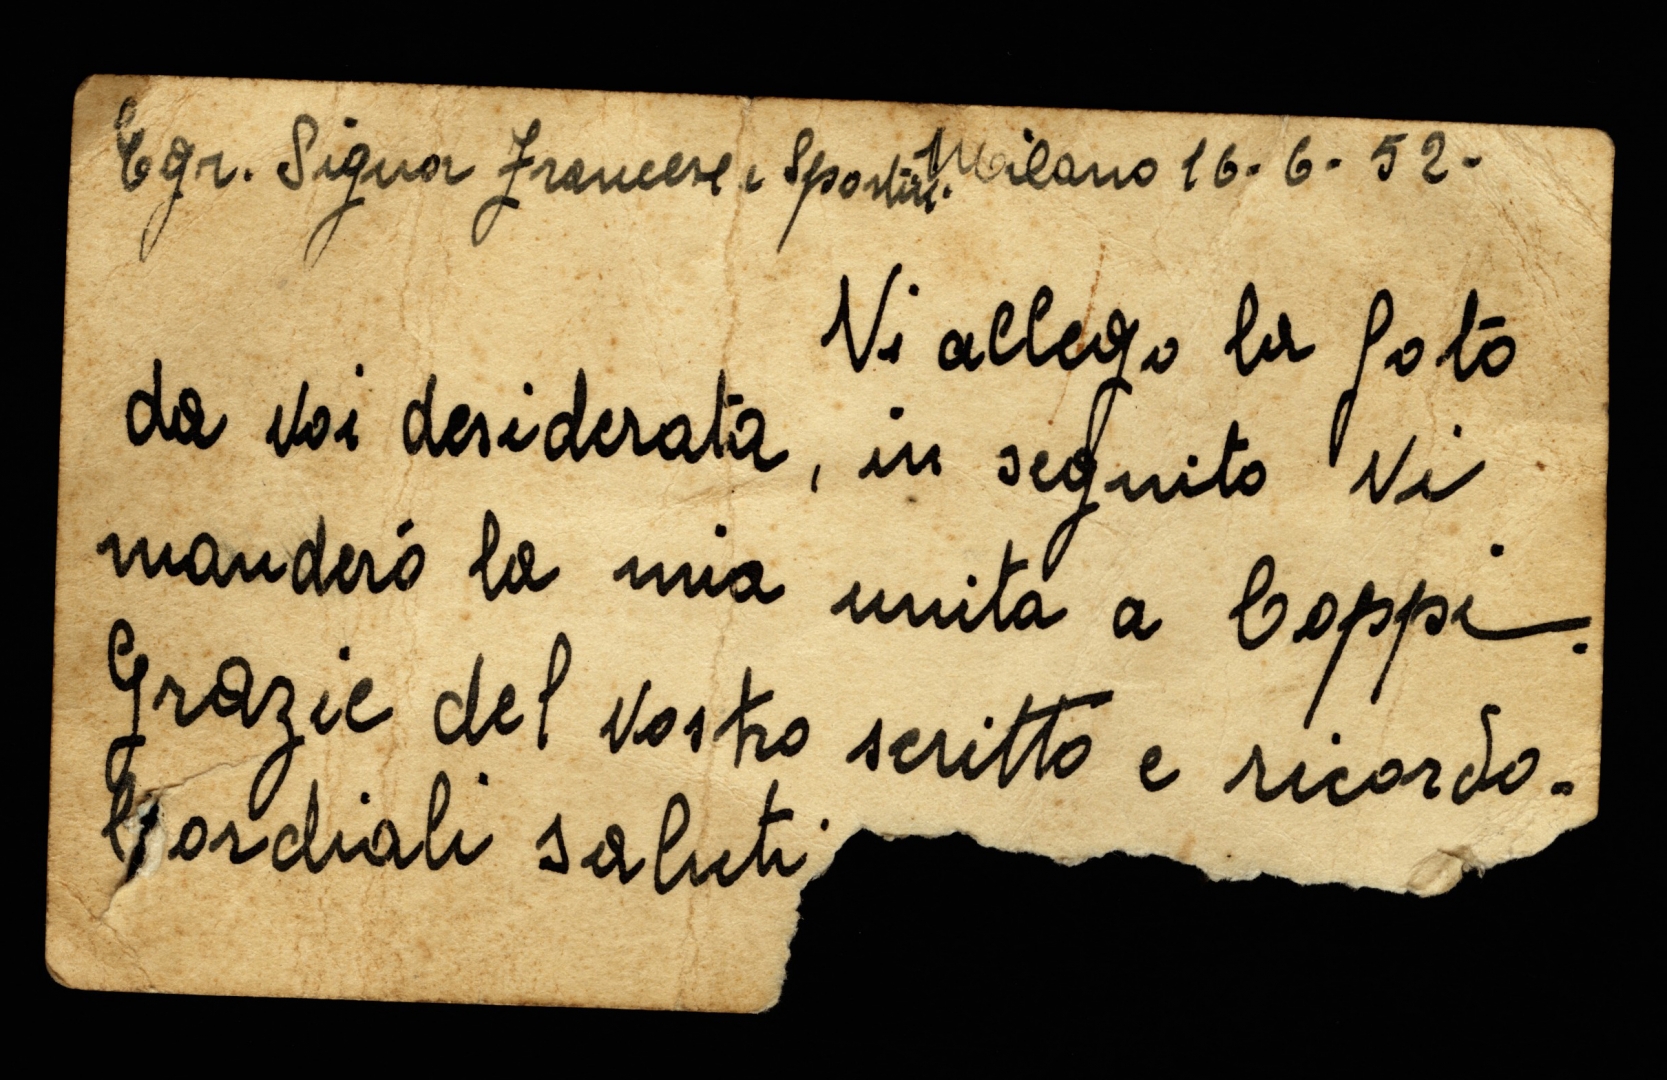 Egr. Signor Francese e Sportivi. Milano 16-6-52-
Vi allego la foto
da voi desiderata, in seguito Vi
manderó la mia unita a Coppi.
Grazie del vostro scritto e ricordo.
Cordiali saluti